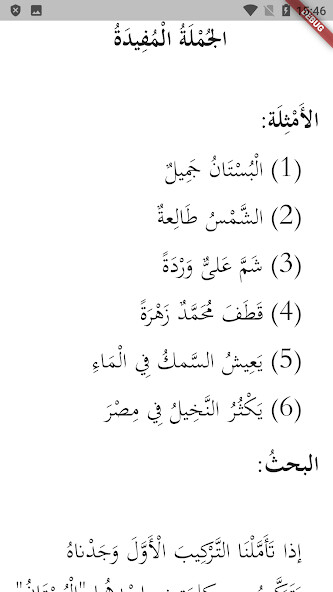 15:46
الجُمْلَةُ الْمُفِيدَةُ
الأَمْثِلَة:
(1) الْبُسْتَانُ جَمِيلٌ
(2) الشَّمْسُ طَالِعةٌ
(3) شَمَّ عَلىٌّ وَرْدَةً
(4) قَطَفَ مُحَمَّدٌ زَهْرَةً
(5) يَعِيشُ السَّمكُ فِي الْمَاءِ
(6) يَكْثُرُ النَّخِيلُ فِي مِصْرَ
البحثُ:
إذا تَأَمَّلْنَا التَّرْكِيبَ الْأَوَّلَ وَجَدْناهُ